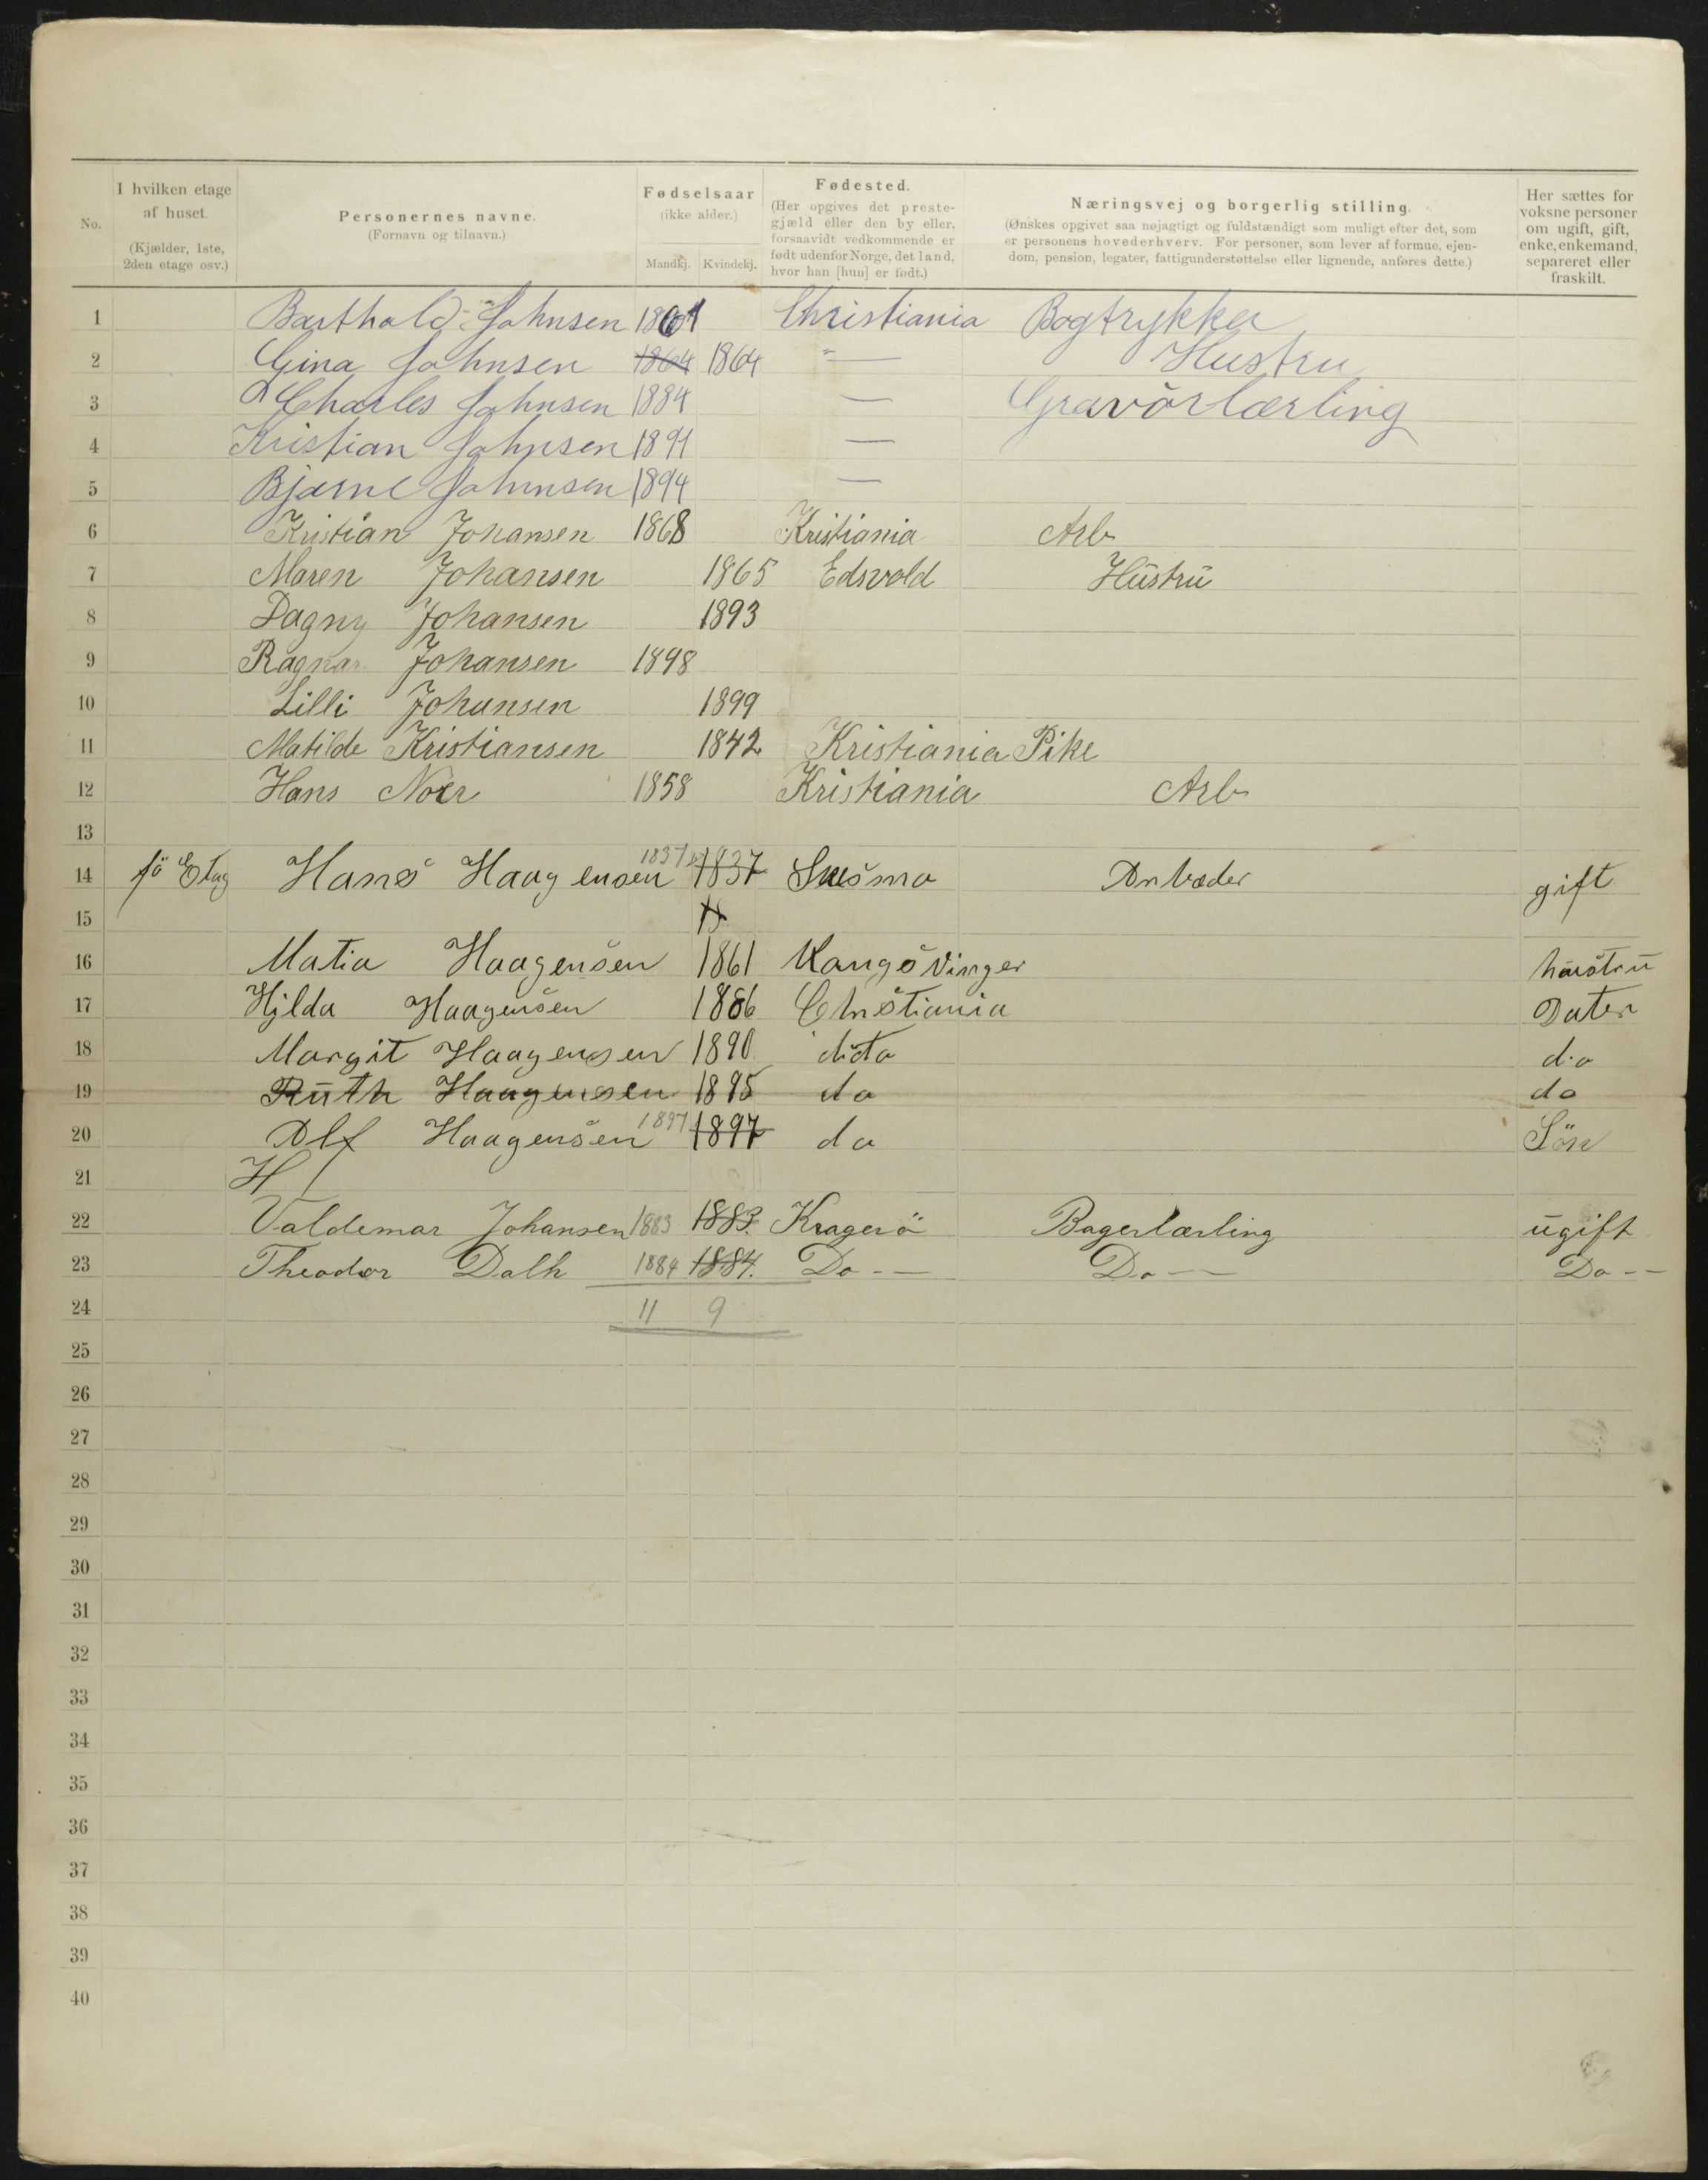 No.
I hvilken etage af huset.
(Kjælder, 1ste, 2den etage osv.)
Personernes navne.
(Fornavn og tilnavn.)
Fødselsaar
(ikke alder.)
Mandkj. Kvindekj.
Fødested.
(Her opgives det prestegjæld eller den by eller, forsaavidt vedkommende er født udenfor Norge, det land, hvor han [hun] er født.)
Næringsvej og borgerlig stilling.
(Ønskes opgivet saa nøjagtigt og fuldstændigt som muligt efter det, som er personens hovederhverv. For personer, som lever af formue, ejendom, pension, legater, fattigunderstøttelse eller lignende, anføres dette.)
Her sættes for voksne personer om ugift, gift, enke, enkemand, separeret eller fraskilt.
1 Barthold Johnsen 1861 Christiania Bogtrykker
2 Gina Johnsen 1864 1864 〃— Hustru
3 Charles Johnsen 1884 — Gravörlærling
4 Kristian Johnsen 1891 —
5 Bjarne Johnsen 1894 —
6 Kristian Johansen 1868 Kristiania Arb
7 Maren Johansen 1865 Edsvold Hustru
8 Dagny Johansen 1893
9 Ragnar Johansen 1898
10 Lilli Johansen 1899
11 Matilde Kristiansen 1842 Kristiania Pike
12 Hans Noer 1858 Kristiania Arb
13
14 Etag Hans Haagensen 1837 1837 gift
15
16 Matia Haagensen 1861 Kangsvinger hustru
17 Hjlda Haagensen 1886 Chrstiania Dater
18 Margit Haagensen 1890 dito do
19 Ruth Haagensen 1895 do do
20 Alf Haagensen 1897 1897 do Sön
21 H
22 Valdemar Johansen 1883 1883. Kragerö Bagerlærling ugift
23 Theodor Dalh 1884 1884. Do — Do — Do —
24 11 9
25
26
27
28
29
30
31
32
33
34
35
36
37
38
39
40